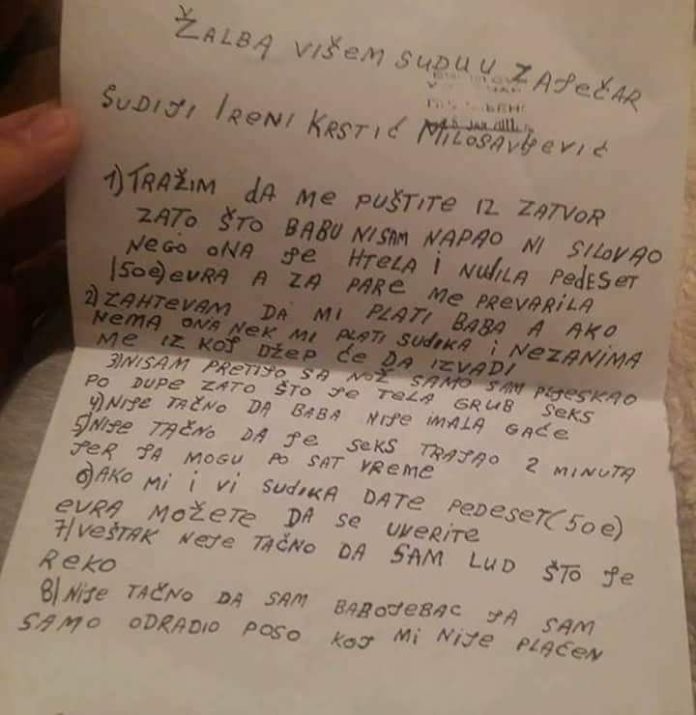 ŽALBA VIŠEM SUDU U ZAJEČAR
SUDIJI IRENI KRSTIĆ MILOSAVLJEVIĆ
1) TRAŽIM DA ME PUŠTITE IZ ZATVOR
ZATO ŠTO BABU NISAM NAPAO NI SILOVAO
NEGO ONA JE HTELA I NUDILA PEDESET
(50e) EVRA A ZA PARE ME PREVARILA
2) ZAHTEVAM DA MI PLATI BABA A AKO
NEMA ONA NEK MI PLATI SUDIKA I NEZANIMA
ME IZ KOJ DŽEP ĆE DA IZVADI
3) NISAM PRETIJO SA NOŽ SAMO SAM PLJESKAO
PO DUPE ZATO ŠTO JE TELA GRUB SEKS
4) NIJE TAČNO DA BABA NIJE IMALA GAĆE
5) NIJE TAČNO DA JE SEKS TRAJAO 2 MINUTA
JER JA MOGU PO SAT VREME
6) AKO MI I VI SUDIKA DATE PEDESET (50e)
EVRA MOŽETE DA SE UVERITE
7) VEŠTAK NEJE TAČNO DA SAM LUD ŠTO JE
REKO
8) NIJE TAČNO DA SAM BABOJEBAC JA SAM
SAMO ODRADIO POSO KOJ MI NIJE PLAĆEN